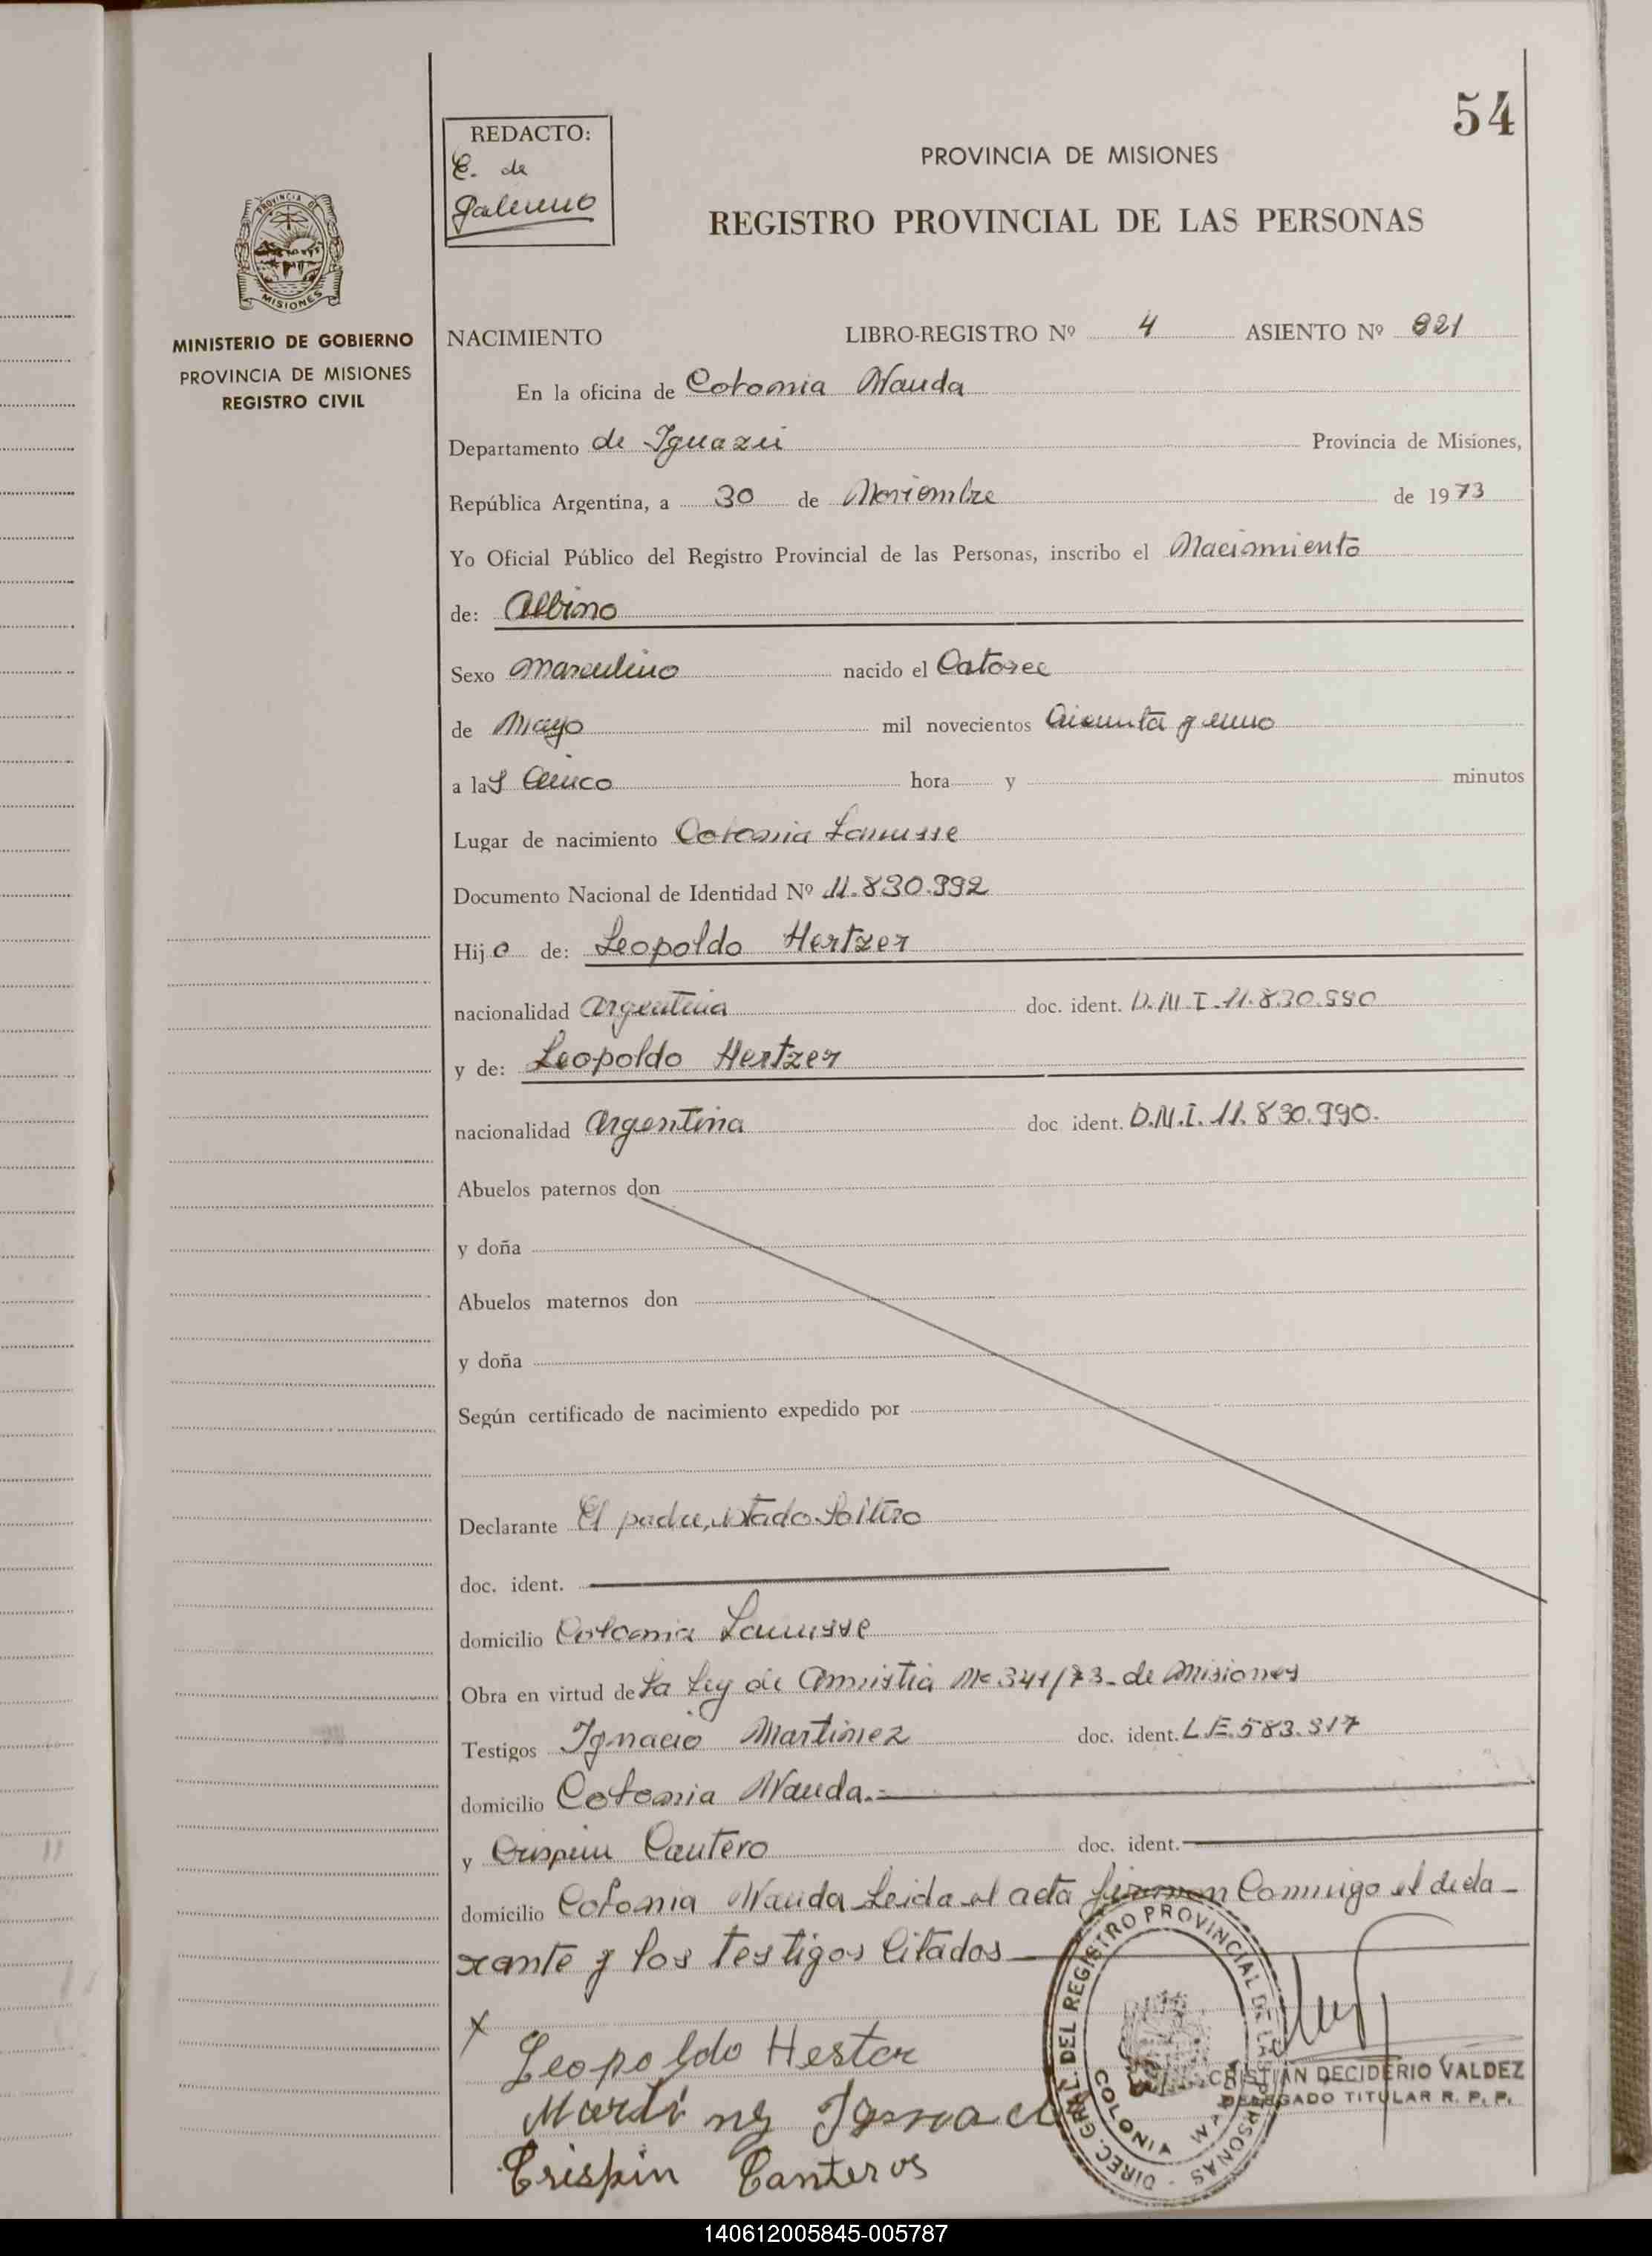 54
REDACTO:
E. de
Galeano
PROVINCIA DE MISIONES
REGISTRO PROVINCIAL DE LAS PERSONAS
PROVINCIA DE
MISIONES
MINISTERIO DE GOBIERNO
PROVINCIA DE MISIONES
REGISTRO CIVIL
NACIMIENTO LIBRO-REGISTRO Nº 4 ASIENTO Nº 821
En la oficina de Colonia Wanda
Departamento de Iguazú Provincia de Misiones,
República Argentina, a 30 de Noviembre de 1973
Yo Oficial Público del Registro Provincial de las Personas, inscribo el Nacimiento
de: Albino
Sexo Masculino nacido el Catorce
de Mayo mil novecientos Cincuenta y uno
a las Cinco hora y minutos
Lugar de nacimiento Colonia Lanusse
Documento Nacional de Identidad Nº 11.830.992
Hijo de: Leopoldo Hertzer
nacionalidad Argentina doc. ident. D.N.I. 11.830.990
y de: Leopoldo Hertzer
nacionalidad Argentina doc ident. D.N.I. 11.830.990.
Abuelos paternos don
y doña
Abuelos maternos don
y doña
Según certificado de nacimiento expedido por
Declarante El padre, estado Soltero
doc. ident.
domicilio Colonia Lanusse
Obra en virtud de La Ley de Amnistia Nº 341/73- de Misiones
Testigos Ignacio Martinez doc. ident. L.E. 583.817
domicilio Colonia Wanda.-
y Crispin Cantero doc. ident.
domicilio Colonia Wanda Leida el acta firman Conmigo el decla-
rante y los testigos Citados
x
Leopoldo Hester
Martinez Ignacio
Crispin Canteros
DIREC. GRAL. DEL REGISTRO PROVINCIAL DE LAS PERSONAS
COLONIA WANDA
CRISTIAN DECIDERIO VALDEZ
DELEGADO TITULAR R. P. P.
140612005845-005787